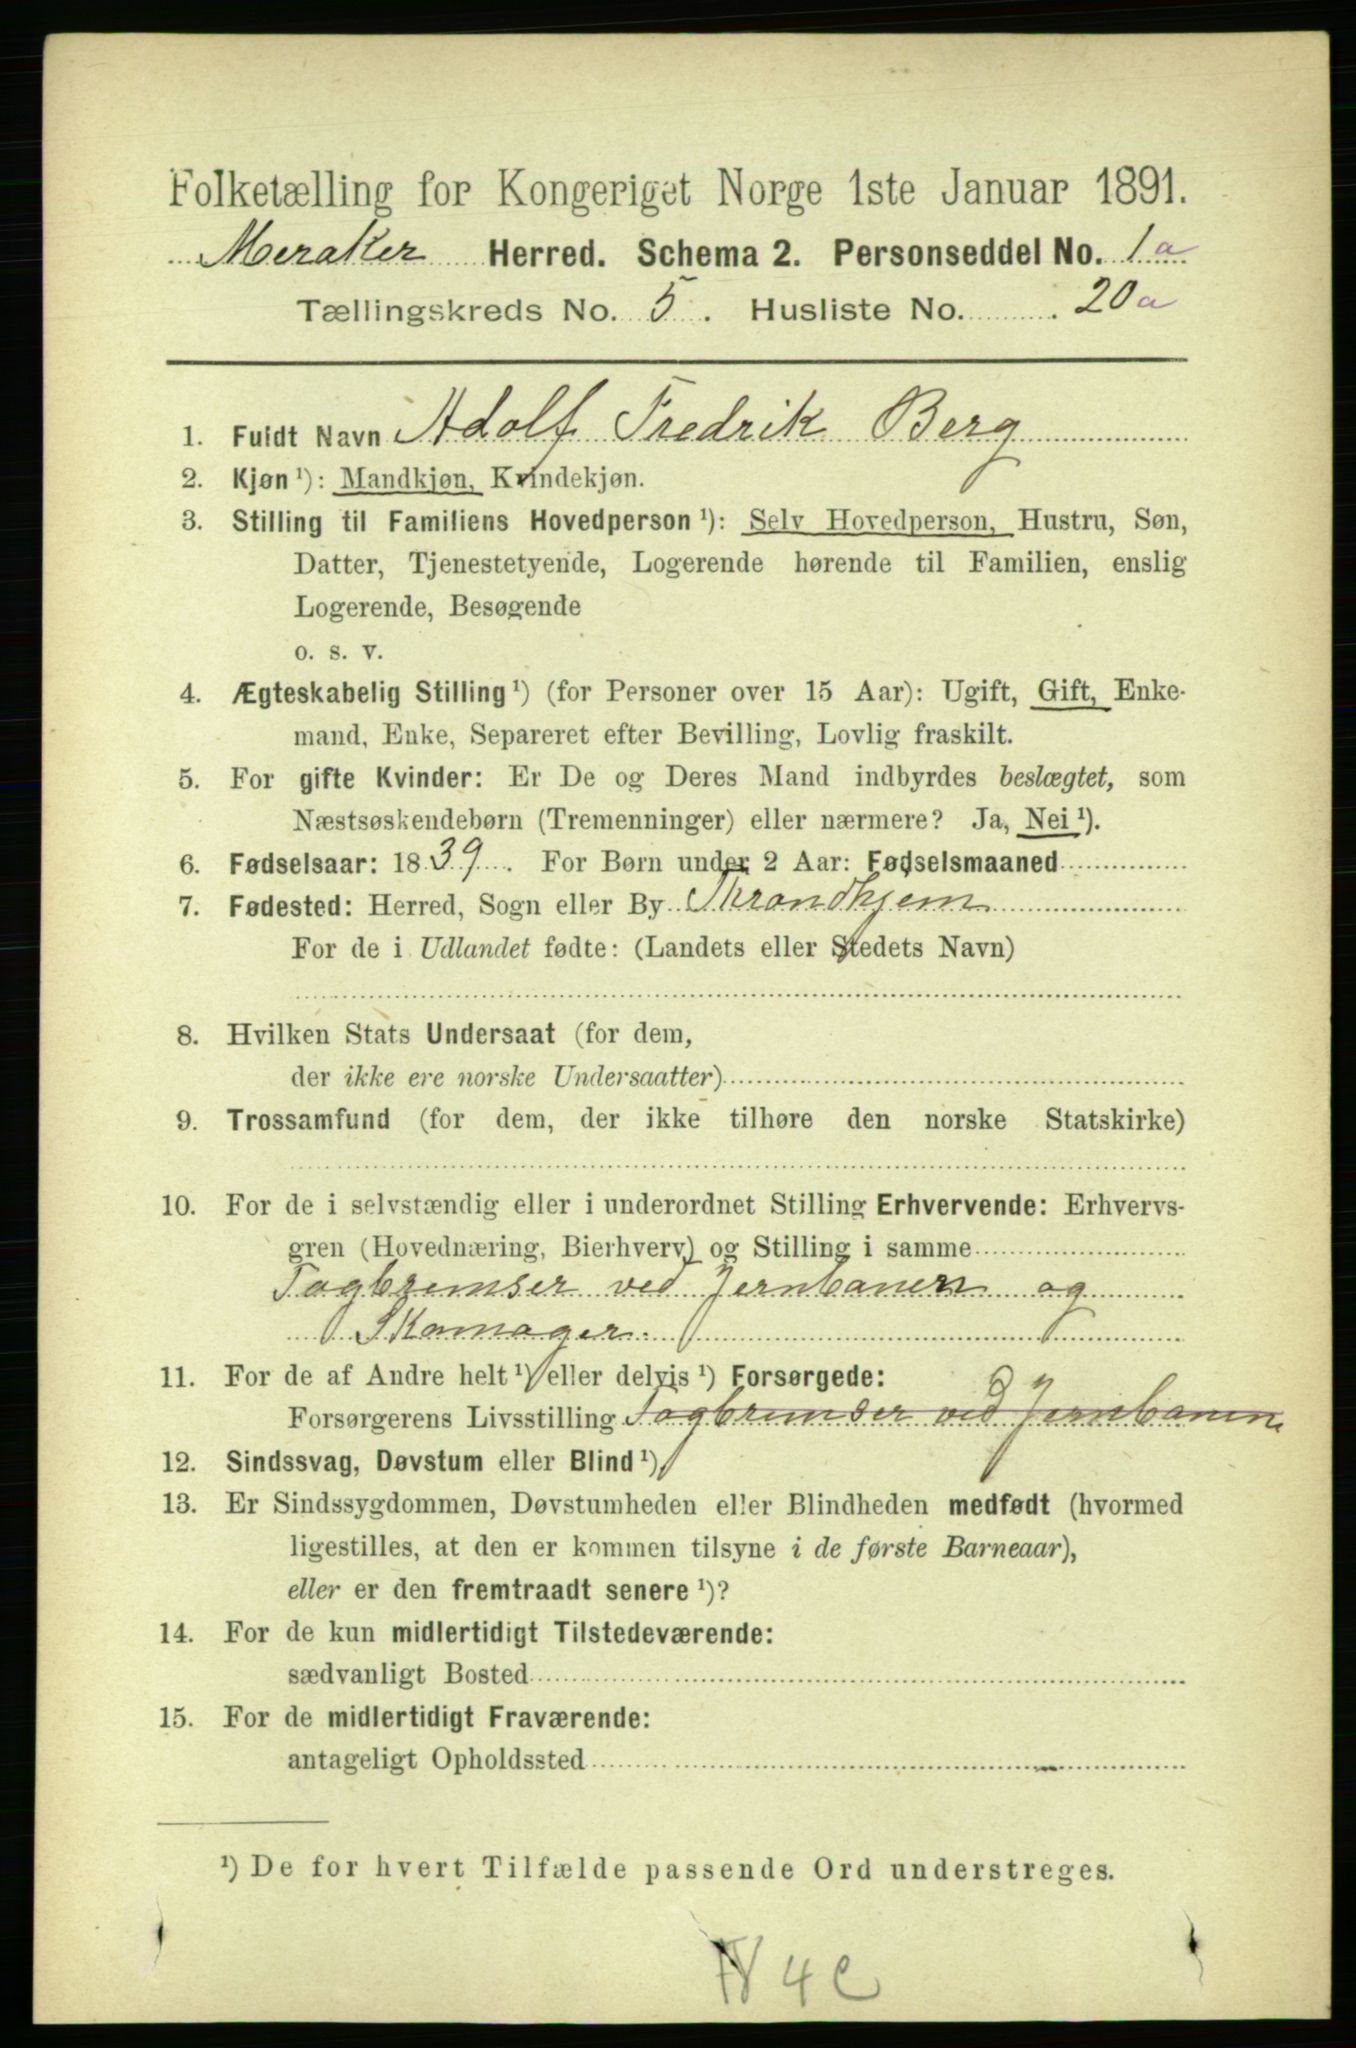 Folketælling for Kongeriget Norge 1ste Januar 1891.
Meraker Herred. Schema 2. Personseddel No. 1a
Tællingskreds No. 5. Husliste No. 20a
1. Fuldt Navn Adolf Fredrik Berg
2. Kjøn ¹): Mandkjøn, Kvindekjøn.
3. Stilling til Familiens Hovedperson ¹): Selv Hovedperson, Hustru, Søn,
Datter, Tjenestetyende, Logerende hørende til Familien, enslig
Logerende, Besøgende
o. s. v.
4. Ægteskabelig Stilling ¹) (for Personer over 15 Aar): Ugift, Gift, Enke-
mand, Enke, Separeret efter Bevilling, Lovlig fraskilt.
5. For gifte Kvinder: Er De og Deres Mand indbyrdes beslægtet, som
Næstsøskendebørn (Tremenninger) eller nærmere? Ja, Nei ¹).
6. Fødselsaar: 1839. For Børn under 2 Aar: Fødselsmaaned
7. Fødested: Herred, Sogn eller By Thrandhjem
For de i Udlandet fødte: (Landets eller Stedets Navn)
8. Hvilken Stats Undersaat (for dem,
der ikke ere norske Undersaatter)
9. Trossamfund (for dem, der ikke tilhøre den norske Statskirke)
10. For de i selvstændig eller i underordnet Stilling Erhvervende: Erhvervs-
gren (Hovednæring, Bierhverv) og Stilling i samme
Togbremser ved Jernbanen og
Skomager.
11. For de af Andre helt ¹) eller delvis ¹) Forsørgede:
Forsørgerens Livsstilling Togbremser ved Jernbanen
12. Sindssvag, Døvstum eller Blind ¹),
13. Er Sindssygdommen, Døvstumheden eller Blindheden medfødt (hvormed
ligestilles, at den er kommen tilsyne i de første Barneaar),
eller er den fremtraadt senere ¹)?
14. For de kun midlertidigt Tilstedeværende:
sædvanligt Bosted
15. For de midlertidigt Fraværende:
antageligt Opholdssted
¹) De for hvert Tilfælde passende Ord understreges.
IV 4 c